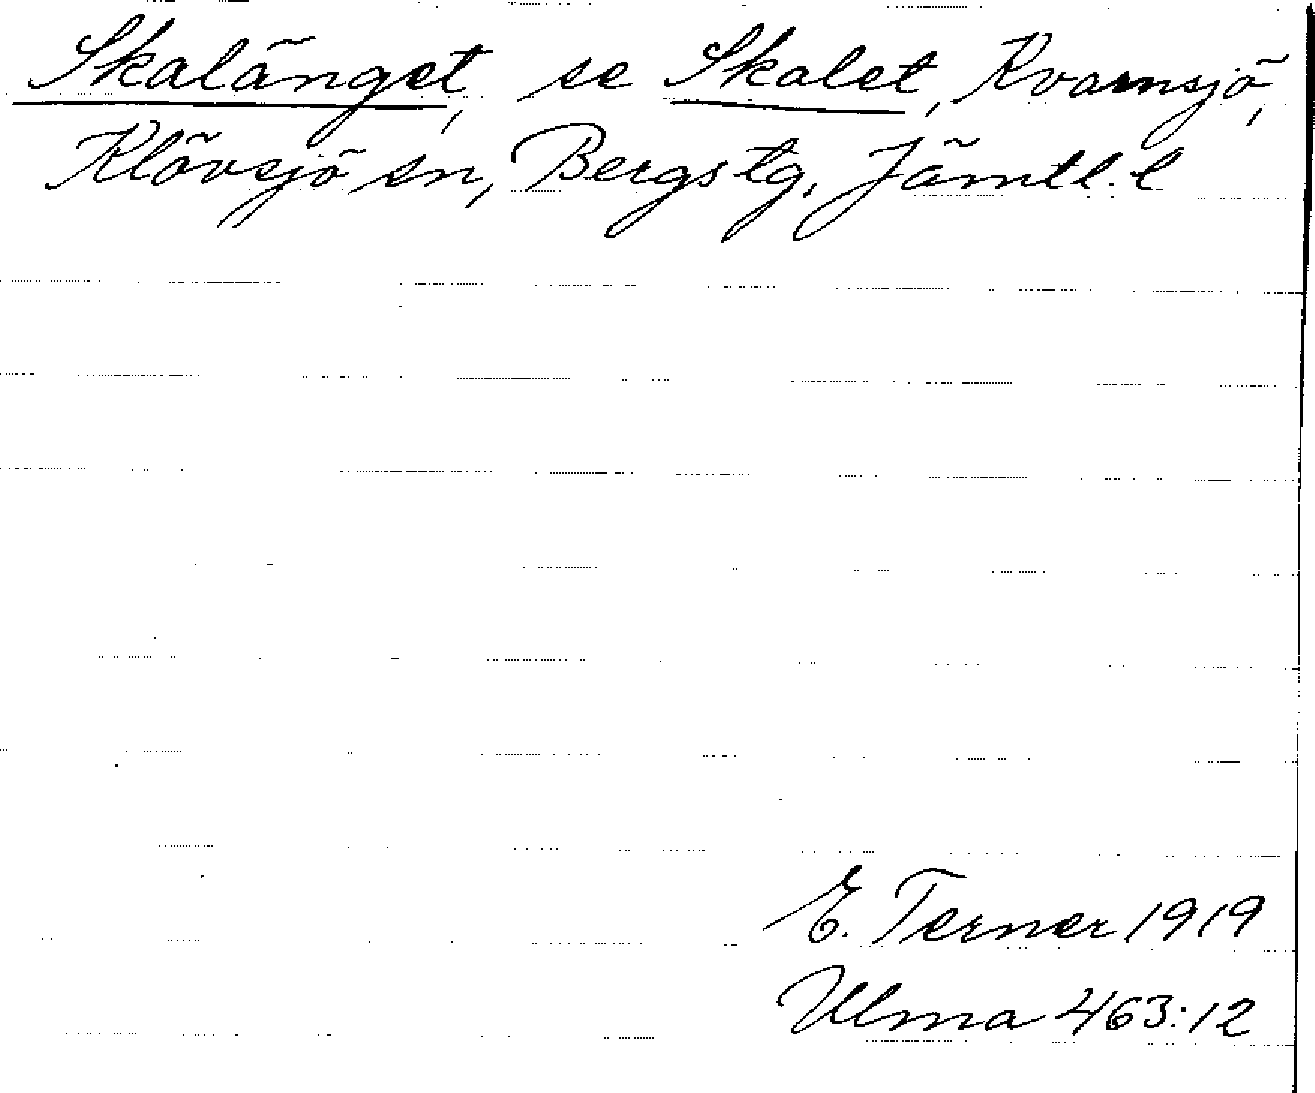 Skalänget, se Skalet, Kvarnsjö,
Klövsjö sn, Bergs tg, Jämtl. l
E. Terner 1919
Ulma 463:12